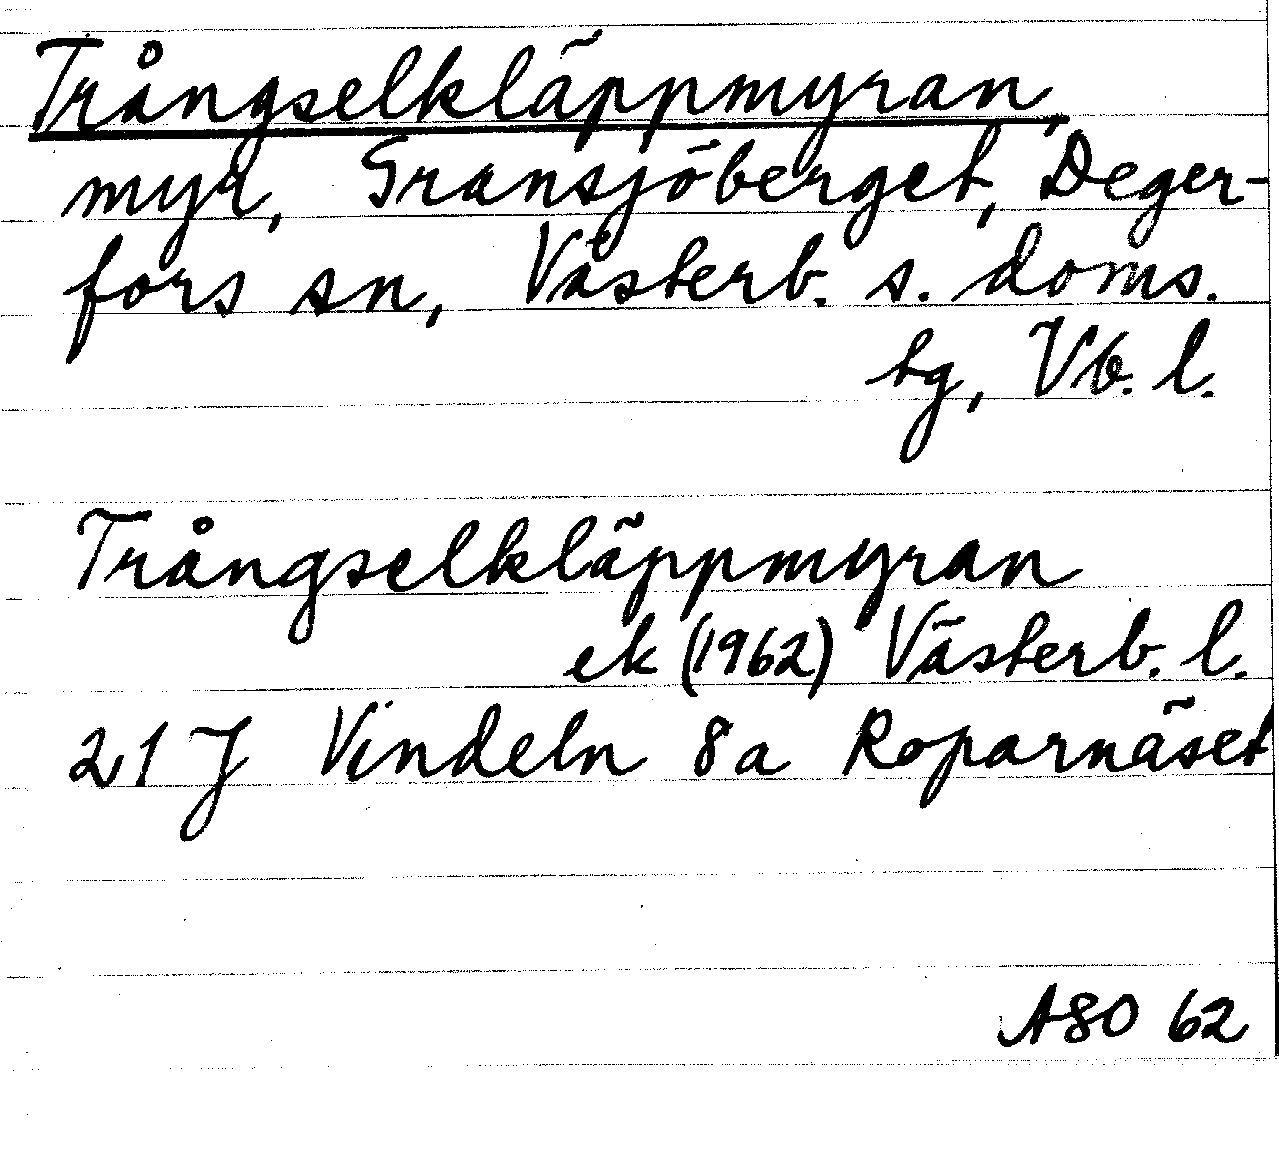 Trångselkläppmyran,
myr, Gransjöberget, Deger-
fors sn, Västerb. s. doms.
tg, Vb. l.
Trångselkläppmyran
ek (1962) Västerb. l.
21 J Vindeln 8a Roparnäset
ASO 62